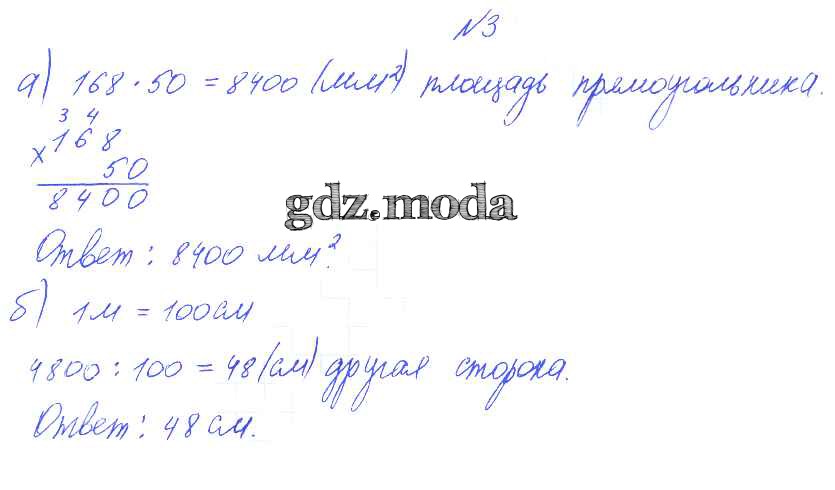 №3
а) 168 · 50 = 8400 (мм²) площадь прямоугольника.
3 4
× 168
50
8400
gdz.moda
Ответ: 8400 мм².
б) 1м = 100см
4800 : 100 = 48 (см) другая сторона.
Ответ: 48 см.